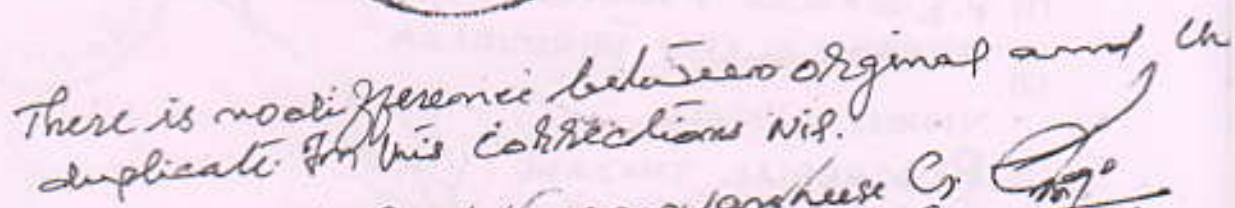 There is no difference between orginal and th
duplicate. In this corrections Nil.
Varghese G.